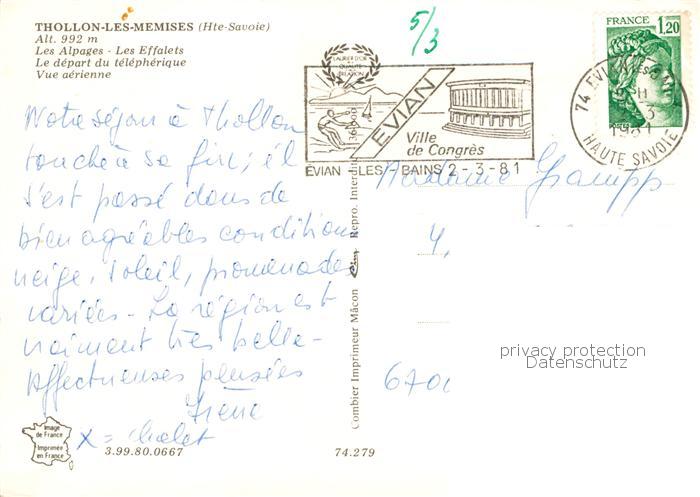 THOLLON-LES-MEMISES (Hte-Savoie)
Alt. 992 m
Les Alpages - Les Effalets
Le départ du téléphérique
Vue aérienne
5/3
FRANCE
1,20
LAURIER D'OR
QUALITÉ
CRÉATION
EVIAN
Ville
de Congrès
EVIAN-LES-BAINS 2-3-81
74 EVIAN
1981
HAUTE SAVOIE
Notre séjour à Thollon
touche à sa fin; il
s'est passé dans de
bien agréables conditions
neige, soleil, promenades
variées - La région est
vraiment très belle -
Affectueuses pensées
Irène
X = chalet
Madame
4,
670
Combier Imprimeur Mâcon
Repro. Interdite
Image
de France
Imprimée
en France
3.99.80.0667
74.279
privacy protection
Datenschutz